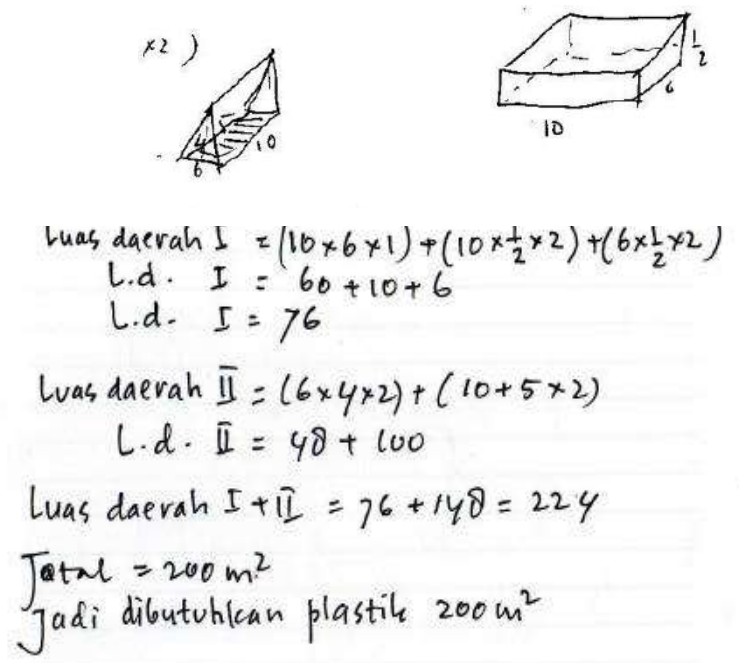 x2 )
4
6
10
10
6
1/2
Luas daerah I = (10x6x1) + (10x1/2x2) + (6x1/2x2)
L.d. I = 60 + 10 + 6
L.d. I = 76
Luas daerah II = (6x4x2) + (10+5x2)
L.d. II = 48 + 100
Luas daerah I + II = 76 + 148 = 224
Total = 200 m²
Jadi dibutuhkan plastik 200 m²